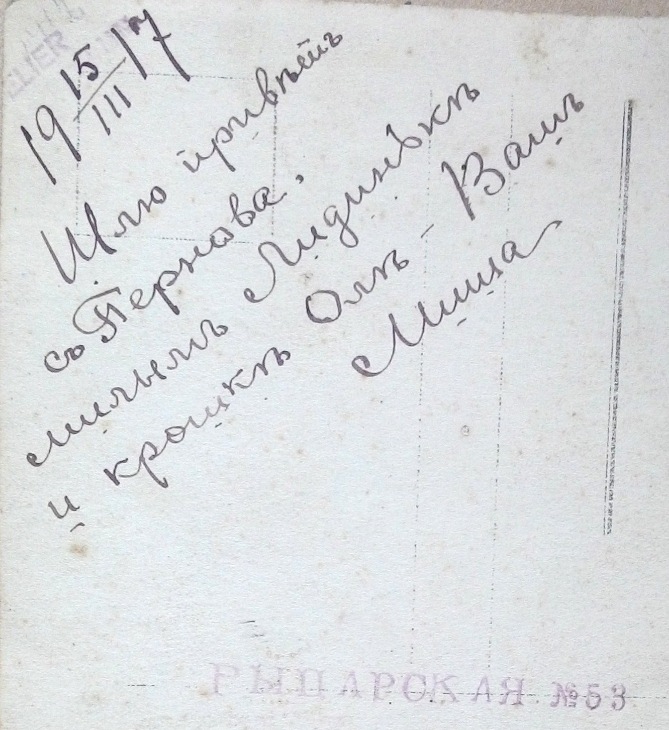 ELIER
19 15/III 17
Шлю привѣтъ
съ Пернова.
милымъ Лидинькѣ
и крошкѣ Олѣ - Вашъ
Миша
РЫЦАРСКАЯ №53